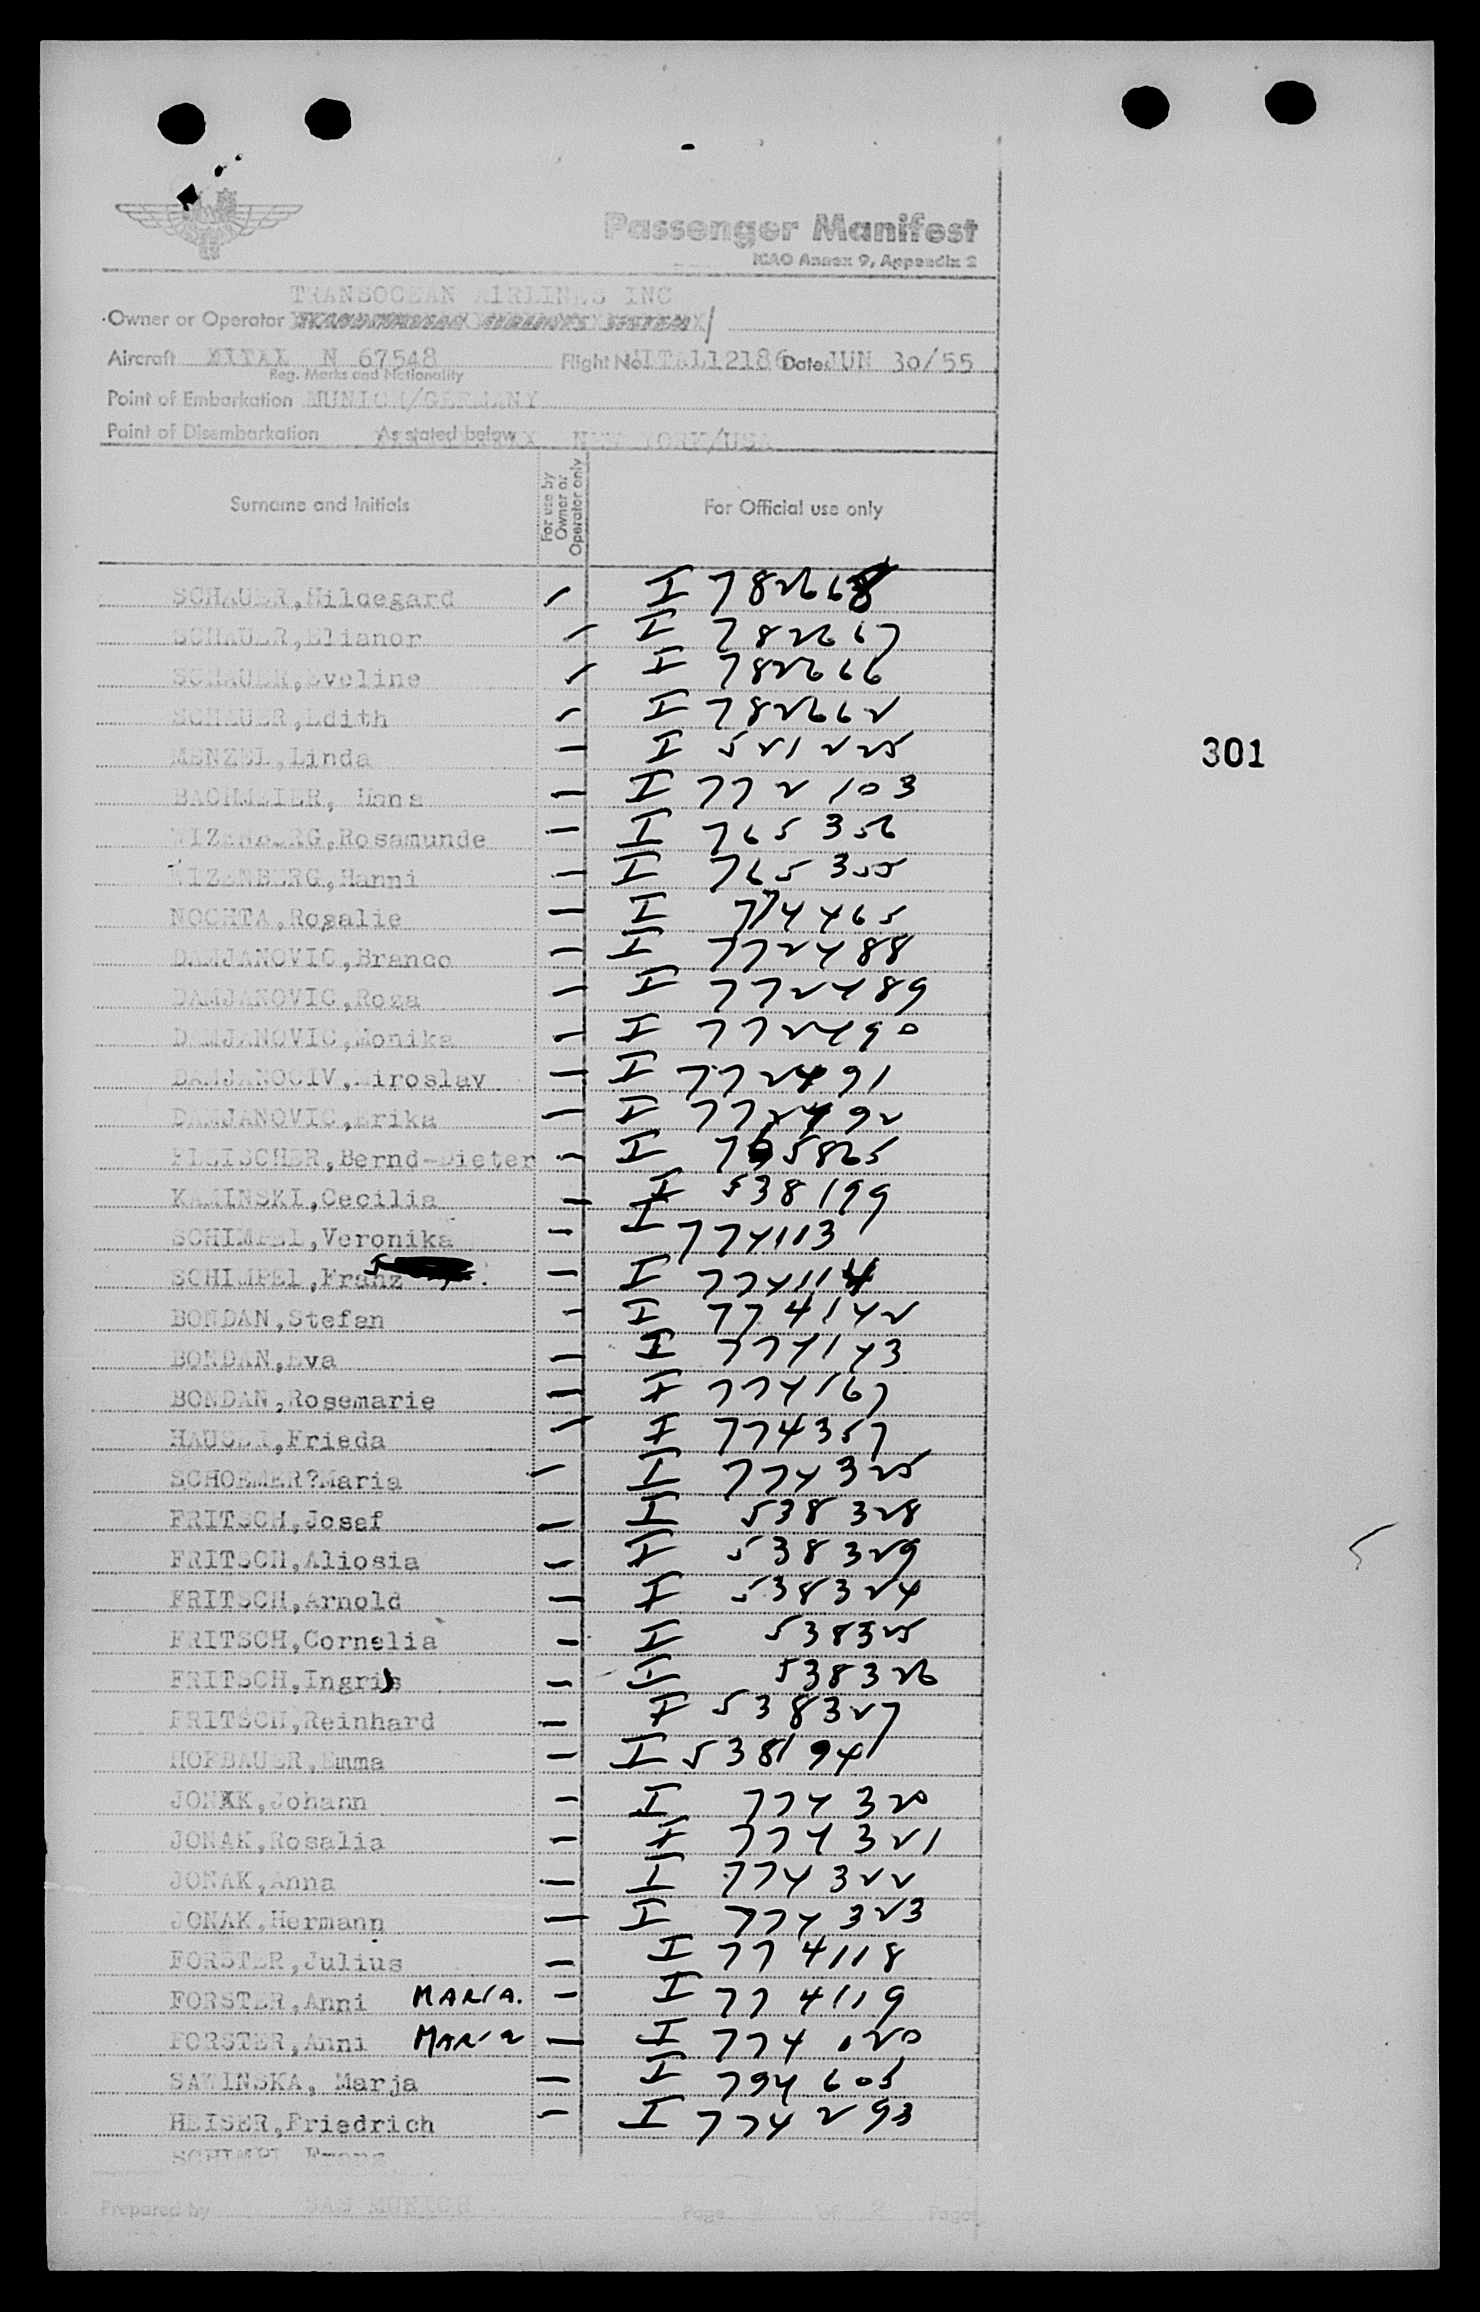 Passenger Manifest
ICAO Annex 9, Appendix 2
TRANSOCEAN AIRLINES INC
Owner or Operator
Aircraft N 67548 Flight No. Date JUN 30/55
Reg. Marks and Nationality
Point of Embarkation MUNICH/GERMANY
Point of Disembarkation As stated below NEW YORK/USA
Surname and Initials For use by Owner or Operator only For Official use only
SCHAUER,Hildegard – I 782668
SCHAUER,Elianor – I 782667
SCHAUER,Eveline – I 782666
SCHAUER,Edith – I 782662
MENZEL,Linda – I 521225
BACHMEIER, Hans – I 772103
WIZENBERG,Rosamunde – I 765356
WIZENBERG,Hanni – I 765355
NOCHTA,Rosalie – I 774465
DAMJANOVIC,Branco – I 772488
DAMJANOVIC,Roza – I 772489
DAMJANOVIC,Monika – I 772490
DAMJANOCIV,Miroslav – I 772491
DAMJANOVIC,Erika – I 772492
FLEISCHER,Bernd-Dieter – I 765865
KAMINSKI,Cecilia – I 538199
SCHIMPEL,Veronika – I 774113
SCHIMPEl,Franz – I 774114
BONDAN,Stefan – I 774142
BONDAN,Eva – I 774143
BONDAN,Rosemarie – I 774167
Frieda – I 774357
SCHOEMER?Maria – I 774325
FRITSCH,Josef – I 538328
FRITSCH,Aliosia – I 538329
FRITSCH,Arnold – I 538324
FRITSCH,Cornelia – I 538325
FRITSCH, – I 538326
FRITSCH,Reinhard – I 538327
HOFBAUER,Emma – I 538194
JONAK,Johann – I 774320
JONAK,Rosalia – I 774321
JONAK,Anna – I 774322
JONAK,Hermann – I 774323
FORSTER,Julius – I 774118
FORSTER,Anni MARIA. – I 774119
FORSTER,Anni MARIA – I 774120
SAWINSKA, Marja – I 794605
HEISER,Friedrich – I 774293
SCHIMPL Franz
Prepared by SAS MUNICH Page of 2 Pages
301